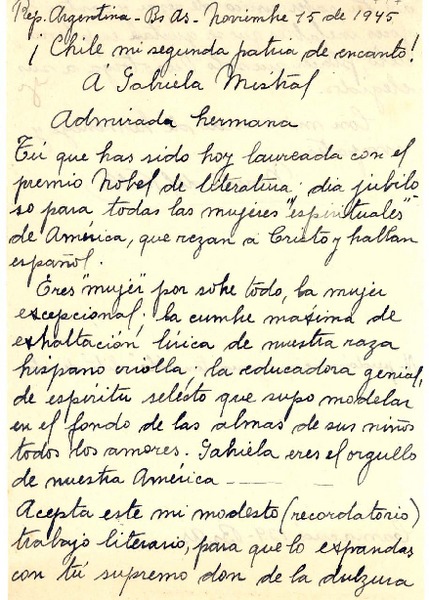 Rep. Argentina - Bs As - Noviembe 15 de 1945
¡Chile mi segunda patria de encanto!
A Gabriela Mistral
Admirada hermana
Tú que has sido hoy laureada con el
premio Nobel de literatura; dia jubilo
so para todas las mujeres "espirituales"
de América, que rezan a Cristo y hablan
español.
Eres "mujer" por sobe todo, la mujer
excepcional; la cumbe maxima de
exhaltación lírica de nuestra raza
hispano criolla; la educadora genial,
de espíritu selécto que supo modelar
en el fondo de las almas de sus niños
todos los amores. Gabriela eres el orgullo
de nuestra América
Acepta este mi modesto (recordatorio)
trabajo literario, para que lo expandas
con tú supremo don de la dulzura